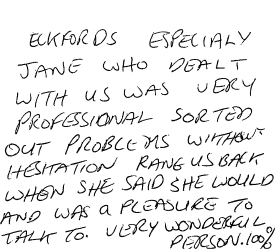 ECKFORDS ESPECIALY
JANE WHO DEALT
WITH US WAS VERY
PROFESSIONAL SORTED
OUT PROBLEMS WITHOUT
HESITATION RANG US BACK
WHEN SHE SAID SHE WOULD
AND WAS A PLEASURE TO
TALK TO. VERY WONDERFUL
PERSON. 100%